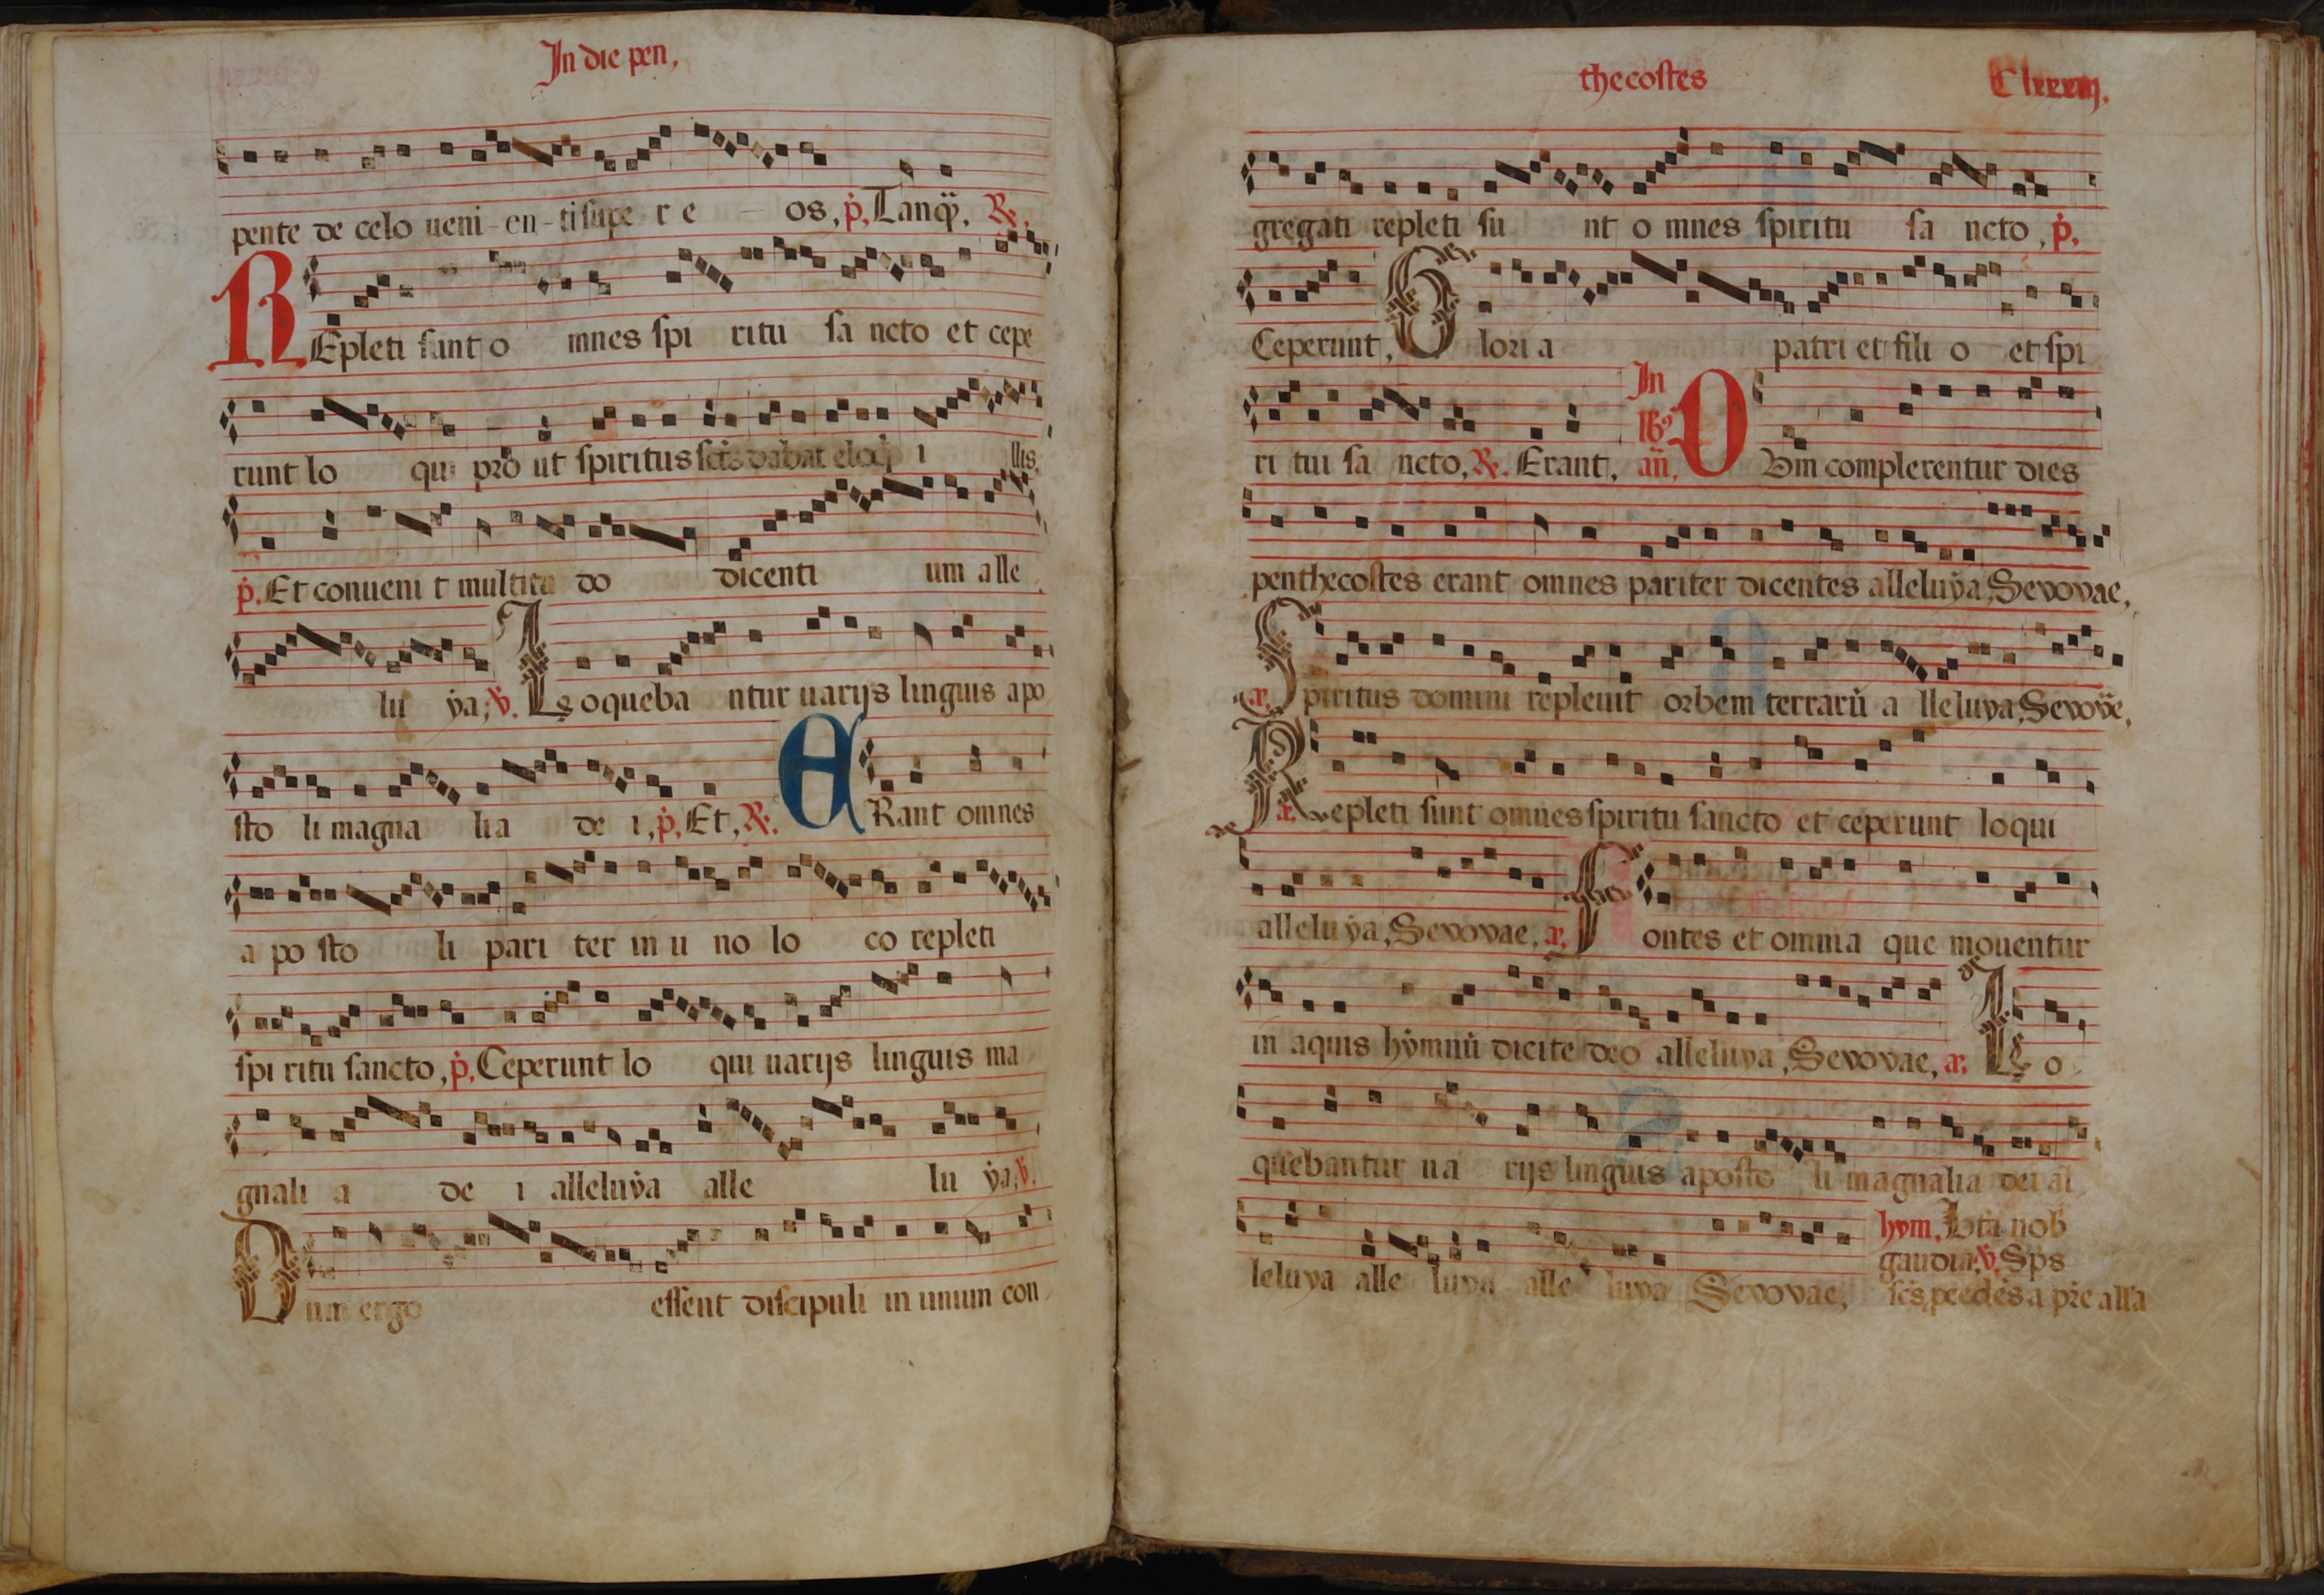 In die pen,
pente de celo ueni-en-ti supe r e os, p̄. Tanq̄, R̄.
REpleti sunt o mnes spi ritu sa ncto et cepe
runt lo qui pro ut spiritus scs̄ dabat eloq̄ i llis,
p̄. Et conueni t multitu do dicenti um alle
lu ẏa; v̄. Loqueba ntur uarijs linguis apo
sto li magna lia de i, p̄. Et, R̄. ERant omnes
a po sto li pari ter in u no lo co repleti
spi ritu sancto, p̄. Ceperunt lo qui uarijs linguis ma
gnali a de i alleluẏa alle lu ẏa, v̄.
Dum ergo essent discipuli in unum con
thecostes
gregati repleti su nt o mnes spiritu sa ncto, p̄.
Ceperunt, Glori a patri et fili o et spi
ri tui sa ncto, R̄. Erant, In lb⁹ an̄, Dum complerentur dies
penthecostes erant omnes pariter dicentes alleluẏa, Seuouae,
a. Spiritus domini repleuit orbem terrarū a lleluya, Seuoūe,
a. Repleti sunt omnes spiritu sancto et ceperunt loqui
alleluẏa, Seuouae, a. Fontes et omnia que mouentur
in aquis hẏmnū dicite deo alleluya, Seuouae, a. Lo
quebantur ua rijs linguis aposto li magnalia dei al
leluya alle luya alle luya Seuouae, hym, Bt̄a nob̄
gaudia, v̄. Sp̄s
sc̄s, pcedēs a pr̄e all̄a